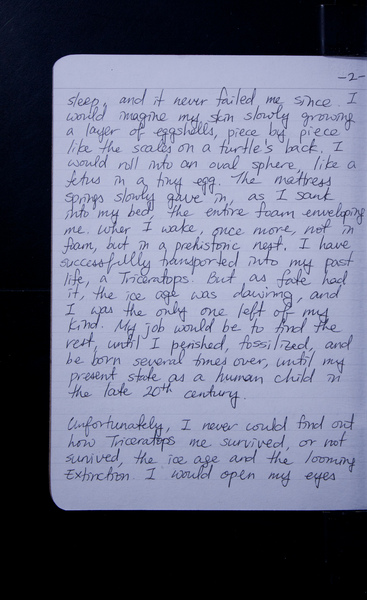 -2-
sleep, and it never failed me since. I
would imagine my skin slowly growing
a layer of eggshells, piece by piece
like the scales on a turtle's back. I
would roll into an oval sphere, like a
fetus in a tiny egg. The mattress
springs slowly gave in, as I sank
into my bed, the entire foam enveloping
me. When I wake, once more, not in
foam, but in a prehistoric nest. I have
successfully transported into my past
life, a Triceratops. But as fate had
it, the ice age was dawning, and
I was the only one left of my
kind. My job would be to find the
rest, until I perished, fossilized, and
be born several times over, until my
present state as a human child in
the late 20th century.
Unfortunately, I never could find out
how Triceratops me survived, or not
survived, the ice age and the looming
Extinction. I would open my eyes